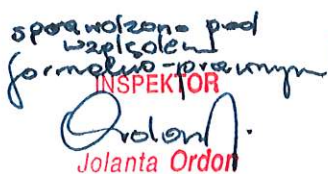 sporządzono pod
względem
formalno-prawnym
INSPEKTOR
Ordon
Jolanta Ordon